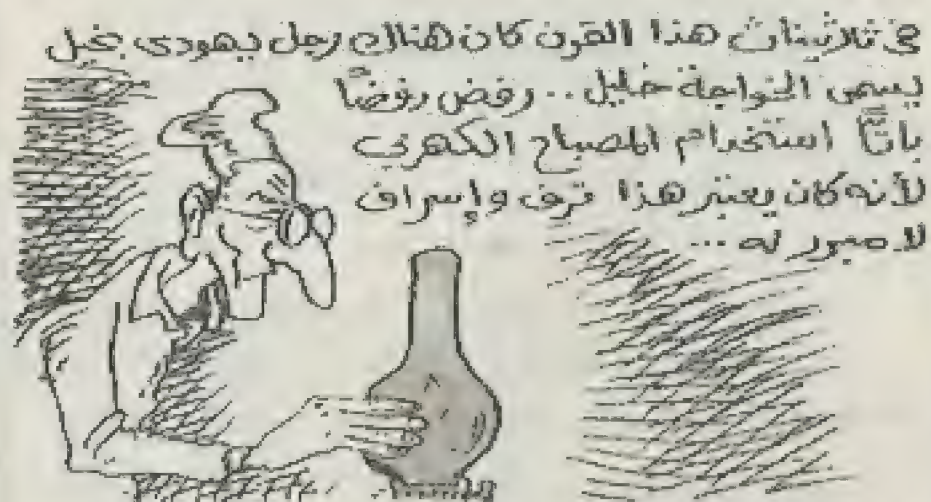 في ثلاثينات هذا القرن كان هناك رجل يهودى بخيل
يسمى الخواجة خليل .. رفض رفضًا
باتًّا استخدام المصباح الكهربى
لأنه كان يعتبر هذا ترف وإسراف
لا مبرر له ...